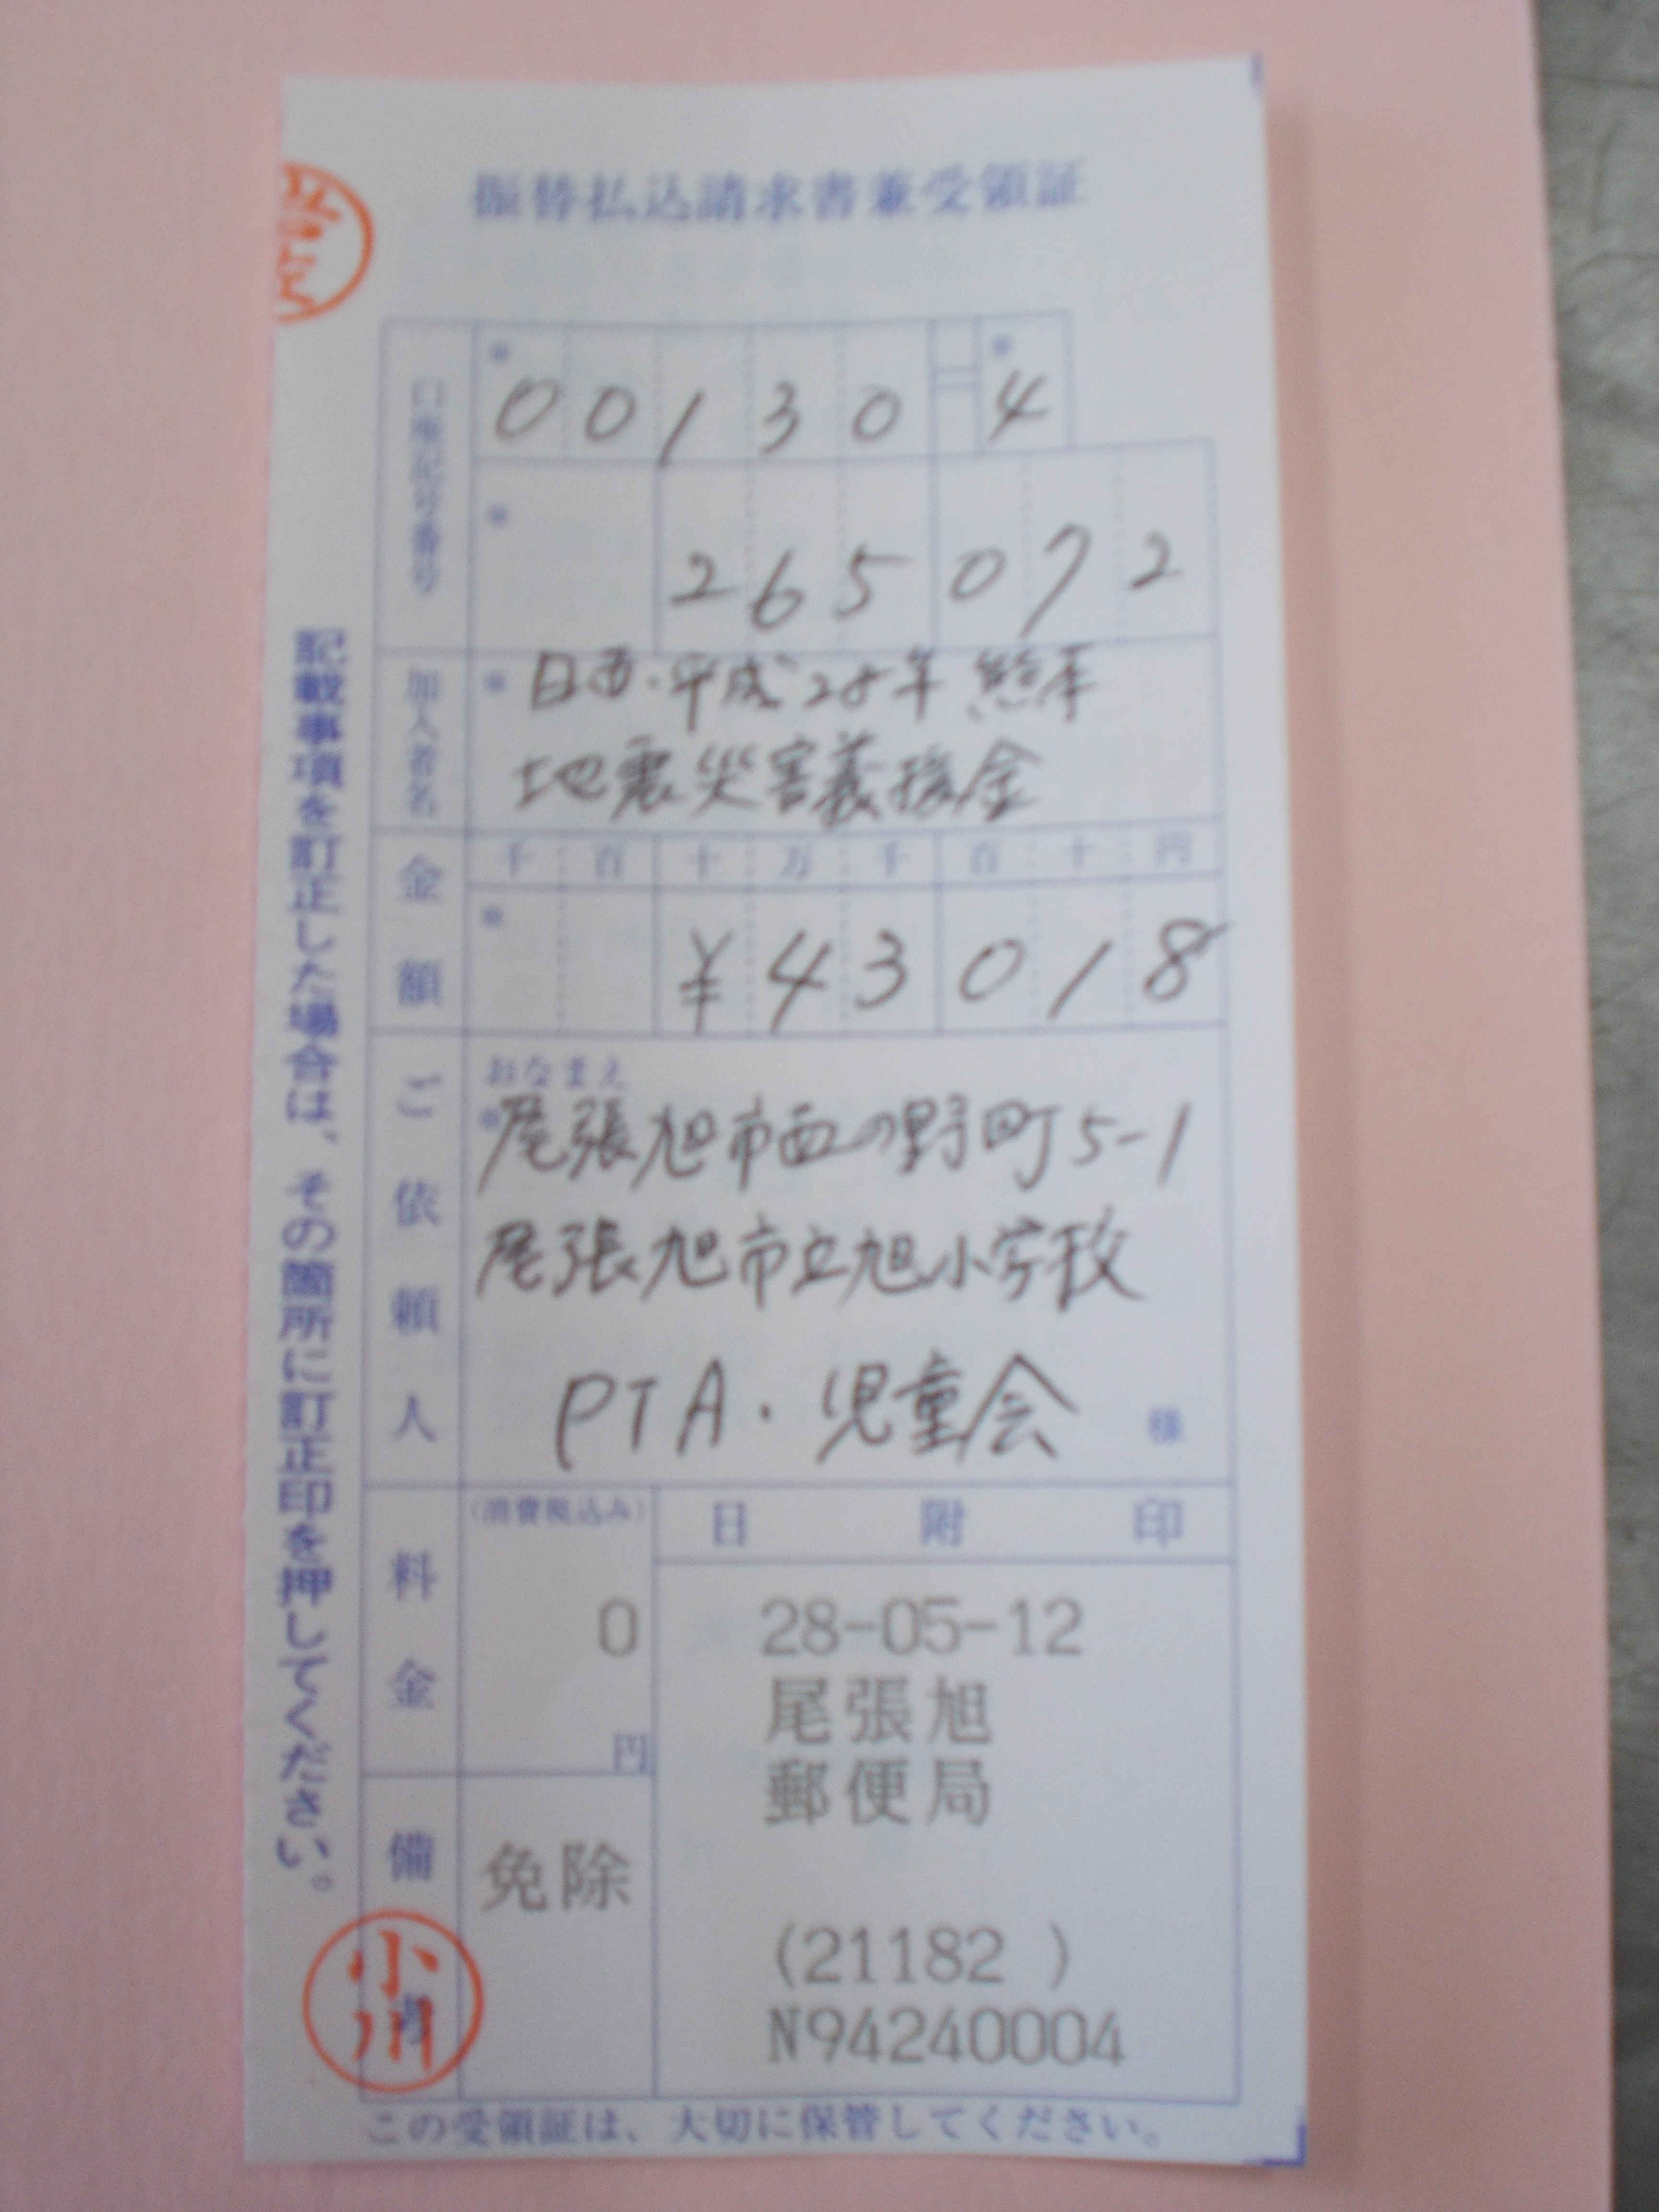 振替払込請求書兼受領証
口座記号番号
* 00130 - * 4
* 265072
加入者名
* 日西・平成28年熊本
地震災害義援金
金額
千 百 十 万 千 百 十 円
* ¥43018
ご依頼人
おなまえ
* 尾張旭市西の野町5-1
尾張旭市立旭小学校
PTA・児童会 様
料金
(消費税込み)
0
円
日附印
28-05-12
尾張旭
郵便局
(21182 )
N94240004
備考
免除
小川
記載事項を訂正した場合は、その箇所に訂正印を押してください。
この受領証は、大切に保管してください。